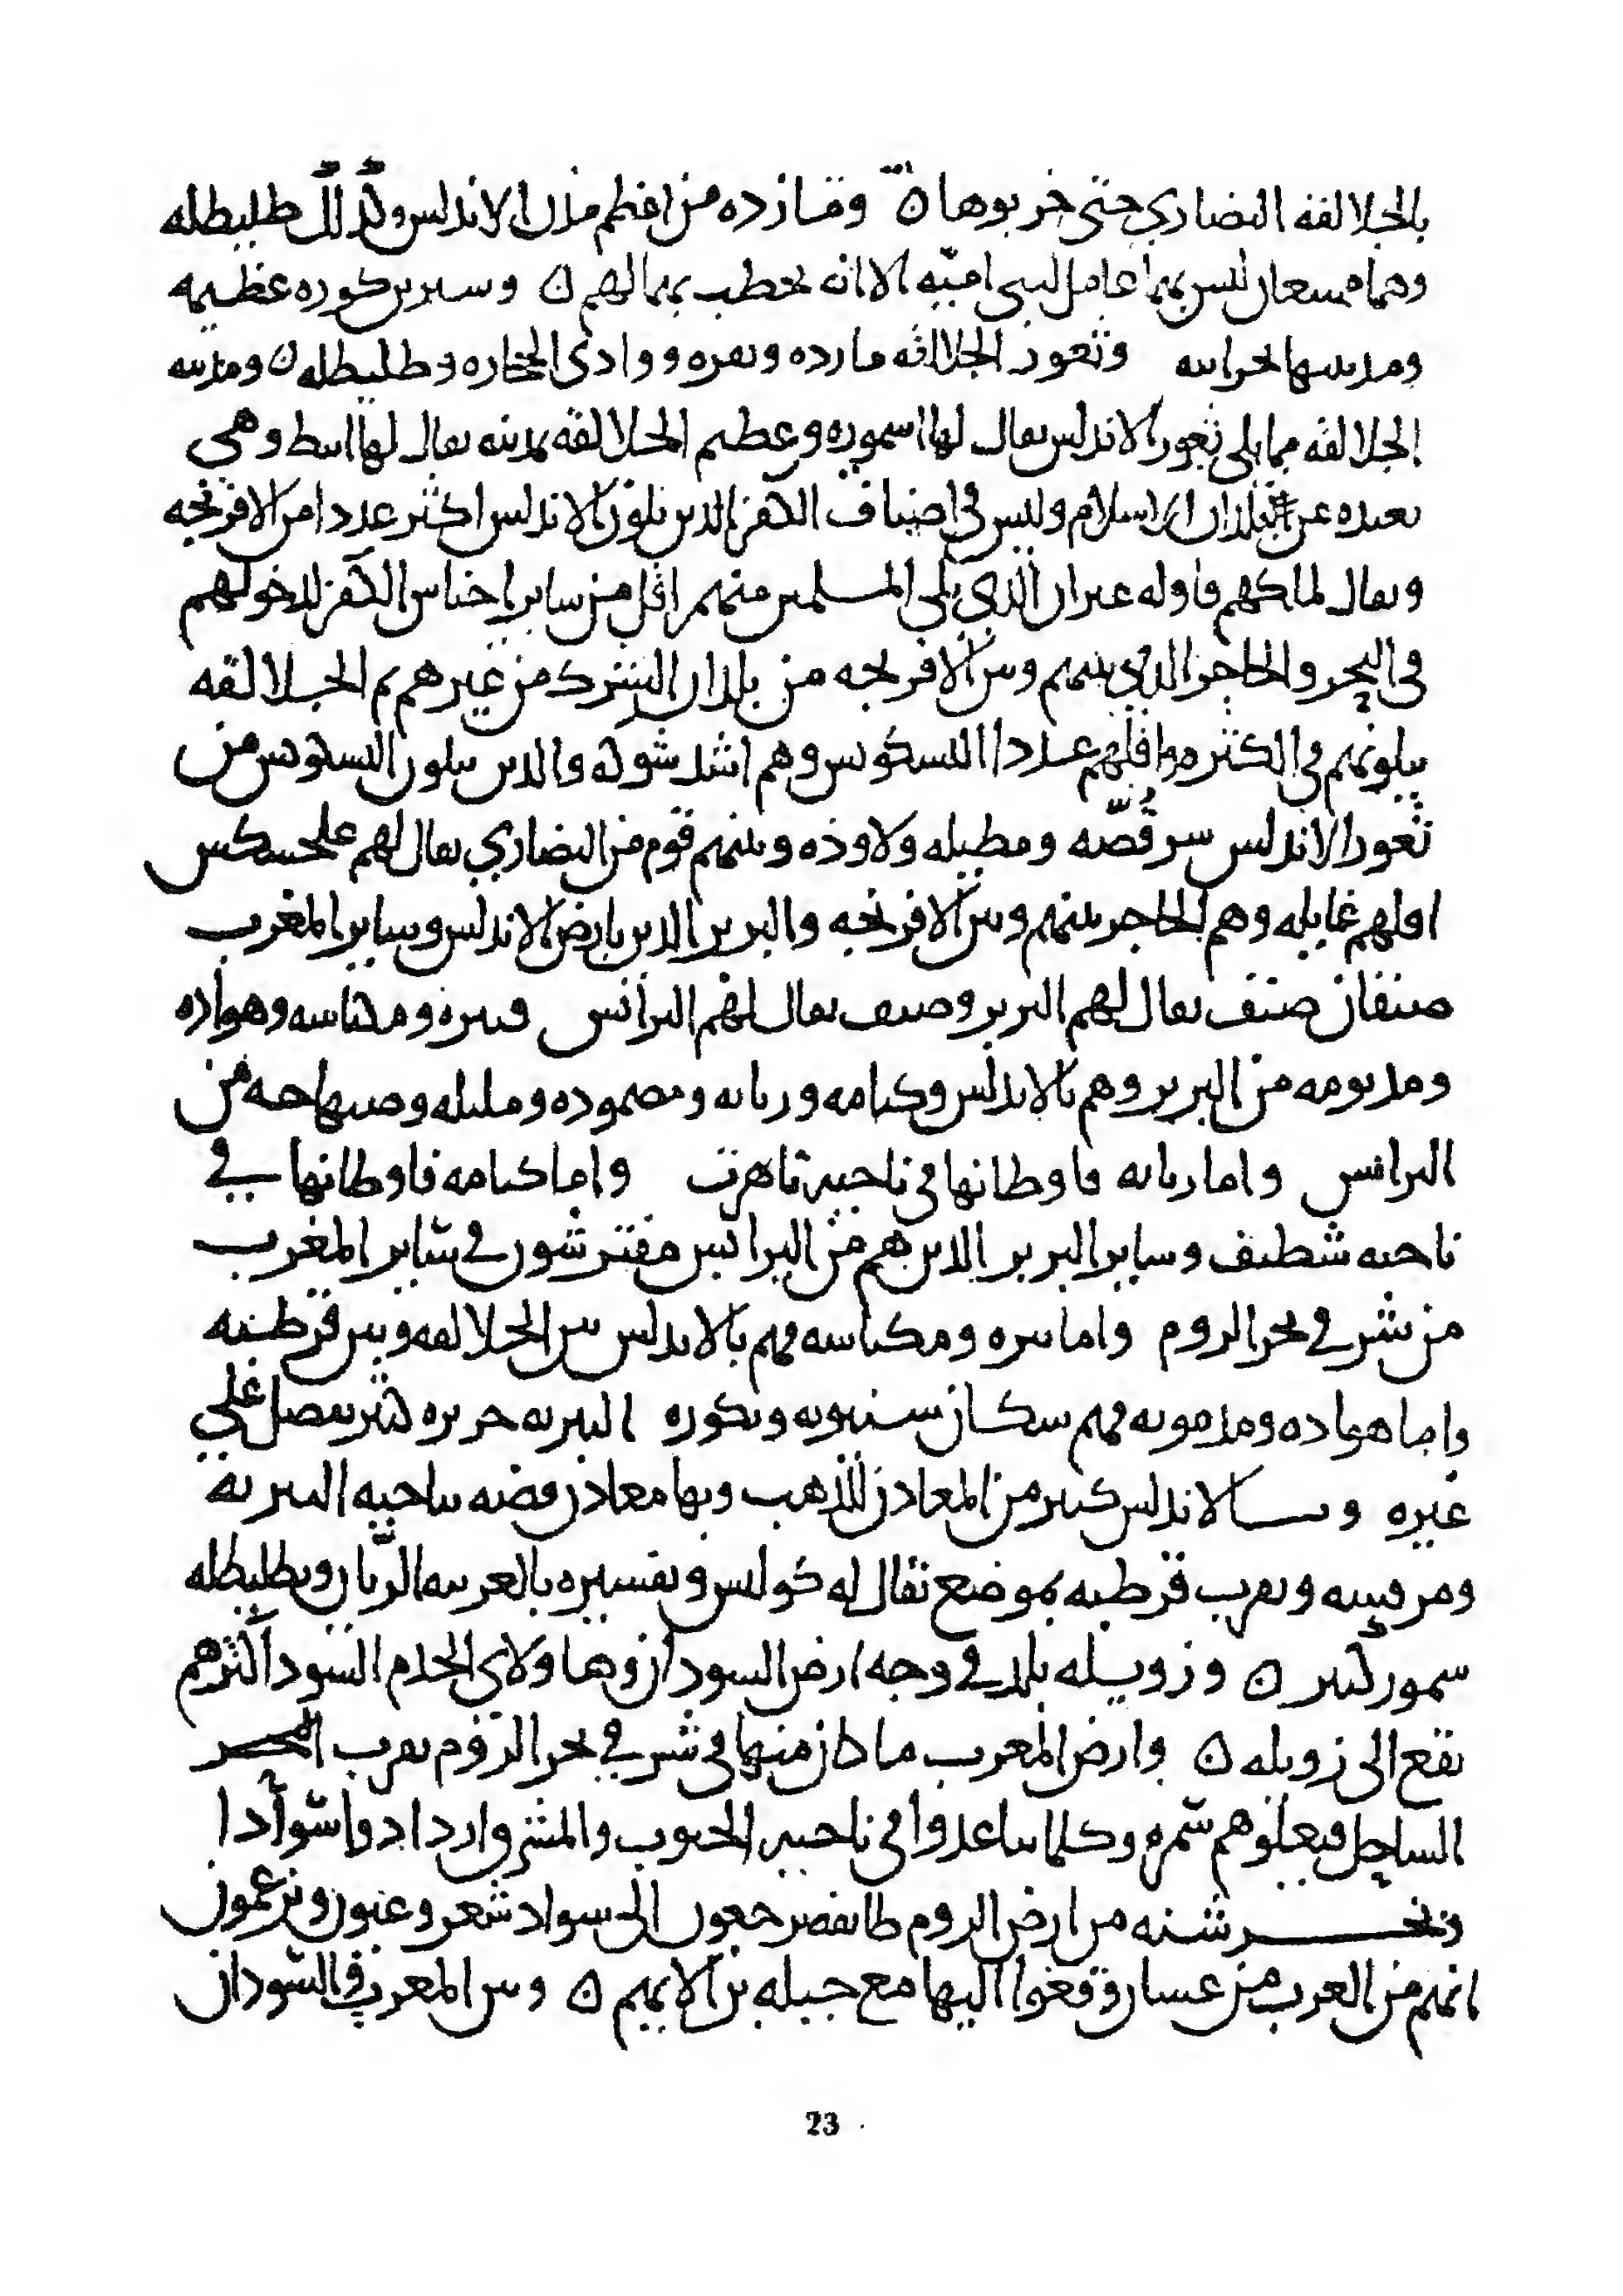 بالجلالقه النصاري حتى خربوها ن وماردة من اعظم مدن الاندلس وكذلك طليطله
وهما ممتنعان ليس بهما عامل لبنى اميّه الا انه يخطب بهما لهم ن وسنترين كوره عظيمه
ومدينتها وثغور الجلالقه مارده ونفزه ووادى الحجاره وطليطله ن ومدينه
الجلالقه مما يلى ثغور الاندلس يقال لها سموره وعظيم الجلالقه بمدينه يقال لها ابيط وهي
بعيده عن بلدان الاسلام وليس في اصناف الكفر الذين يلون الاندلس اكثر عددا من الافرنجه
ويقال لملكهم قاوله غير ان الذي يلي المسلمين منهم اقل من ساير اجناس الكفر لدخولهم
في البحر والحاجز الذي بينهم وبين الافرنجه من بلدان الشرك من غيرهم ثم الجلالقه
يتلونهم في الكثره واقلهم عددا البسكونس وهم اشد شوكه والذين يتلون البسكونس من
ثغور الاندلس سرقصّه وتطيله ولاوذه ويليهم قوم من النصاري يقال لهم علجسكس
اقلهم غايله وهم الحاجز بينهم وبين الافرنجه والبربر الذين بارض الاندلس وساير المغرب
صنفان صنف يقال لهم البربر وصنف يقال لهم البرانس فنفزه ومكناسه وهواره
ومديونه من البربر وهم بالاندلس وكتامه وزناته ومصموده ومليله وصنهاجه من
البرانس واما زناته فاوطانها في ناحيه تاهرت واما كتامه فاوطانها في
ناحيه شطيف وساير البربر الذين هم من البرانس مفترشون في ساير المغرب
من شرقي بحر الروم واما نفزه ومكناسه فهم بالاندلس بين الجلالقه وبين قرطبه
واما هواره ومديونه فهم سكان سنتبريه وبكوره البيره حرير كثير يفضل علي
غيره وبالاندلس كثير من المعادن للذهب وبها معادن فضه بناحيه البيره
ومرسيه وبقرب قرطبه بموضع يقال له كرتس وتفسيره بالعربيه وبطليطله
سمور كثير ن وزويله بلد في وجه ارض السودان وهاولاى الخدم السود اكثرهم
يقع الى زويله ن وارض المغرب ما كان منها في شرقي بحر الروم بقرب
الساحل فتعلوهم سمره وكلما تباعدوا في ناحيه الجنوب والمشرق ازدادوا سوادا
خرشنه من ارض الروم طايفه يرجعون الى سواد شعر وعيون ويزعمون
انهم من العرب من غسان وقعوا اليها مع جبله بن الايهم ن وبين المغرب والسودان
23